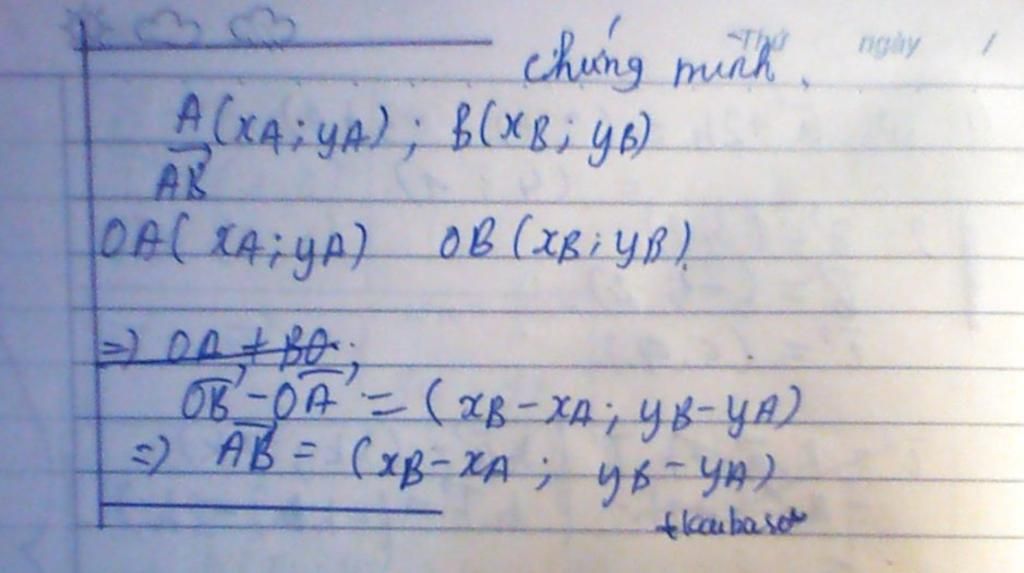 Thứ ngày /
chứng minh.
A(xA; yA); B(xB; yB)
AB
OA(xA; yA) OB(xB; yB).
=> OA + BO;
OB - OA = (xB - xA; yB - yA)
=> AB = (xB - xA; yB - yA)